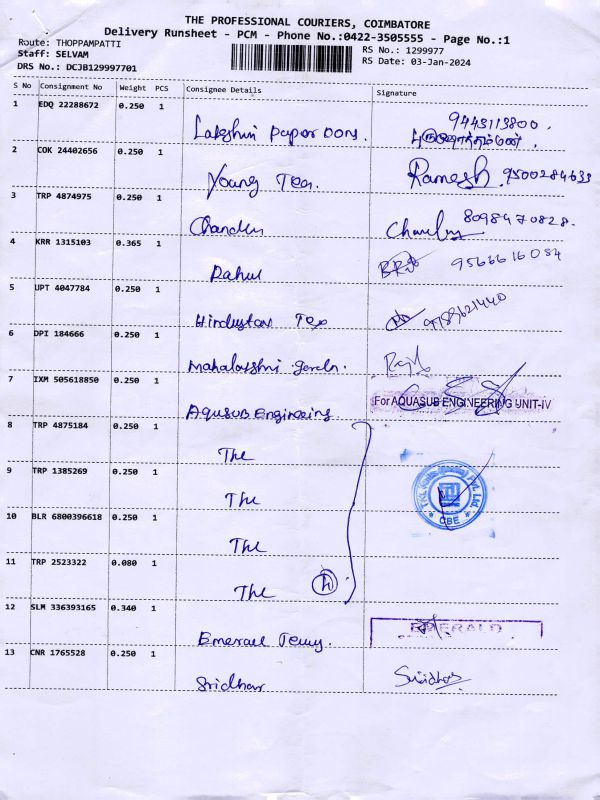 THE PROFESSIONAL COURIERS, COIMBATORE
Delivery Runsheet - PCM - Phone No.:0422-3505555 - Page No.:1
Route: THOPPAMPATTI
RS No.: 1299977
Staff: SELVAM
RS Date: 03-Jan-2024
DRS No.: DCJB129997701
S No Consignment No Weight PCS Consignee Details Signature
1 EDQ 22288672 0.250 1
Lakshmi Paper Cons. 9443113800.
புருஷோத்தமன்.
2 COK 24402656 0.250 1
Young Tex. Ramesh 9500284633
3 TRP 4874975 0.250 1
Chandru 8098470828.
4 KRR 1315103 0.365 1
Rahul 9566616084
5 UPT 4047784 0.250 1
Hindustan Tex
6 DPI 184666 0.250 1
Mahalakshmi
7 IXM 505618850 0.250 1
Aquasub Engineering. For AQUASUB ENGINEERING UNIT-IV
8 TRP 4875184 0.250 1
The
9 TRP 1385269 0.250 1
The CBE
10 BLR 6800396618 0.250 1
The
11 TRP 2523322 0.080 1
The
12 SLM 336393165 0.340 1
Emerald EMERALD
13 CNR 1765528 0.250 1
Sridhar Sridhar